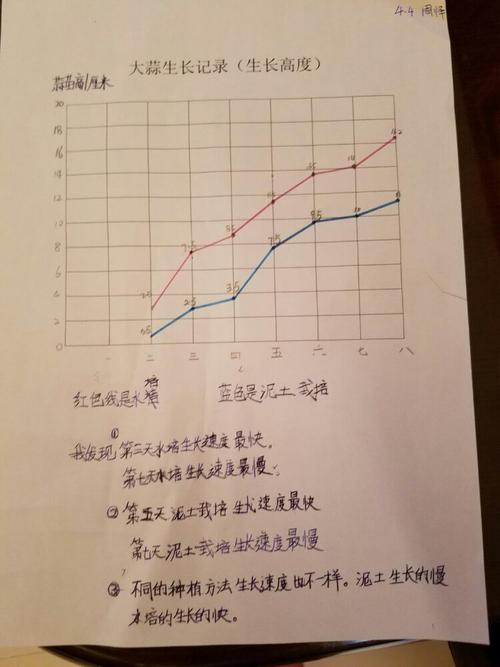 4.4 周
大蒜生长记录（生长高度）
蒜苗高/厘米
20
18
16
14
12
10
8
6
4
2
0
一 二 三 四 五 六 七 八
7.5
2.5
3.5
7.5
9.5
10
14
0.5
红色线是水培
蓝色是泥土栽培
① 我发现第三天水培生长速度最快。
第七天水培生长速度最慢；
② 第五天泥土栽培生长速度最快
第七天泥土栽培生长速度最慢
③ 不同的种植方法生长速度也不一样。泥土生长的慢
水培的生长的快。